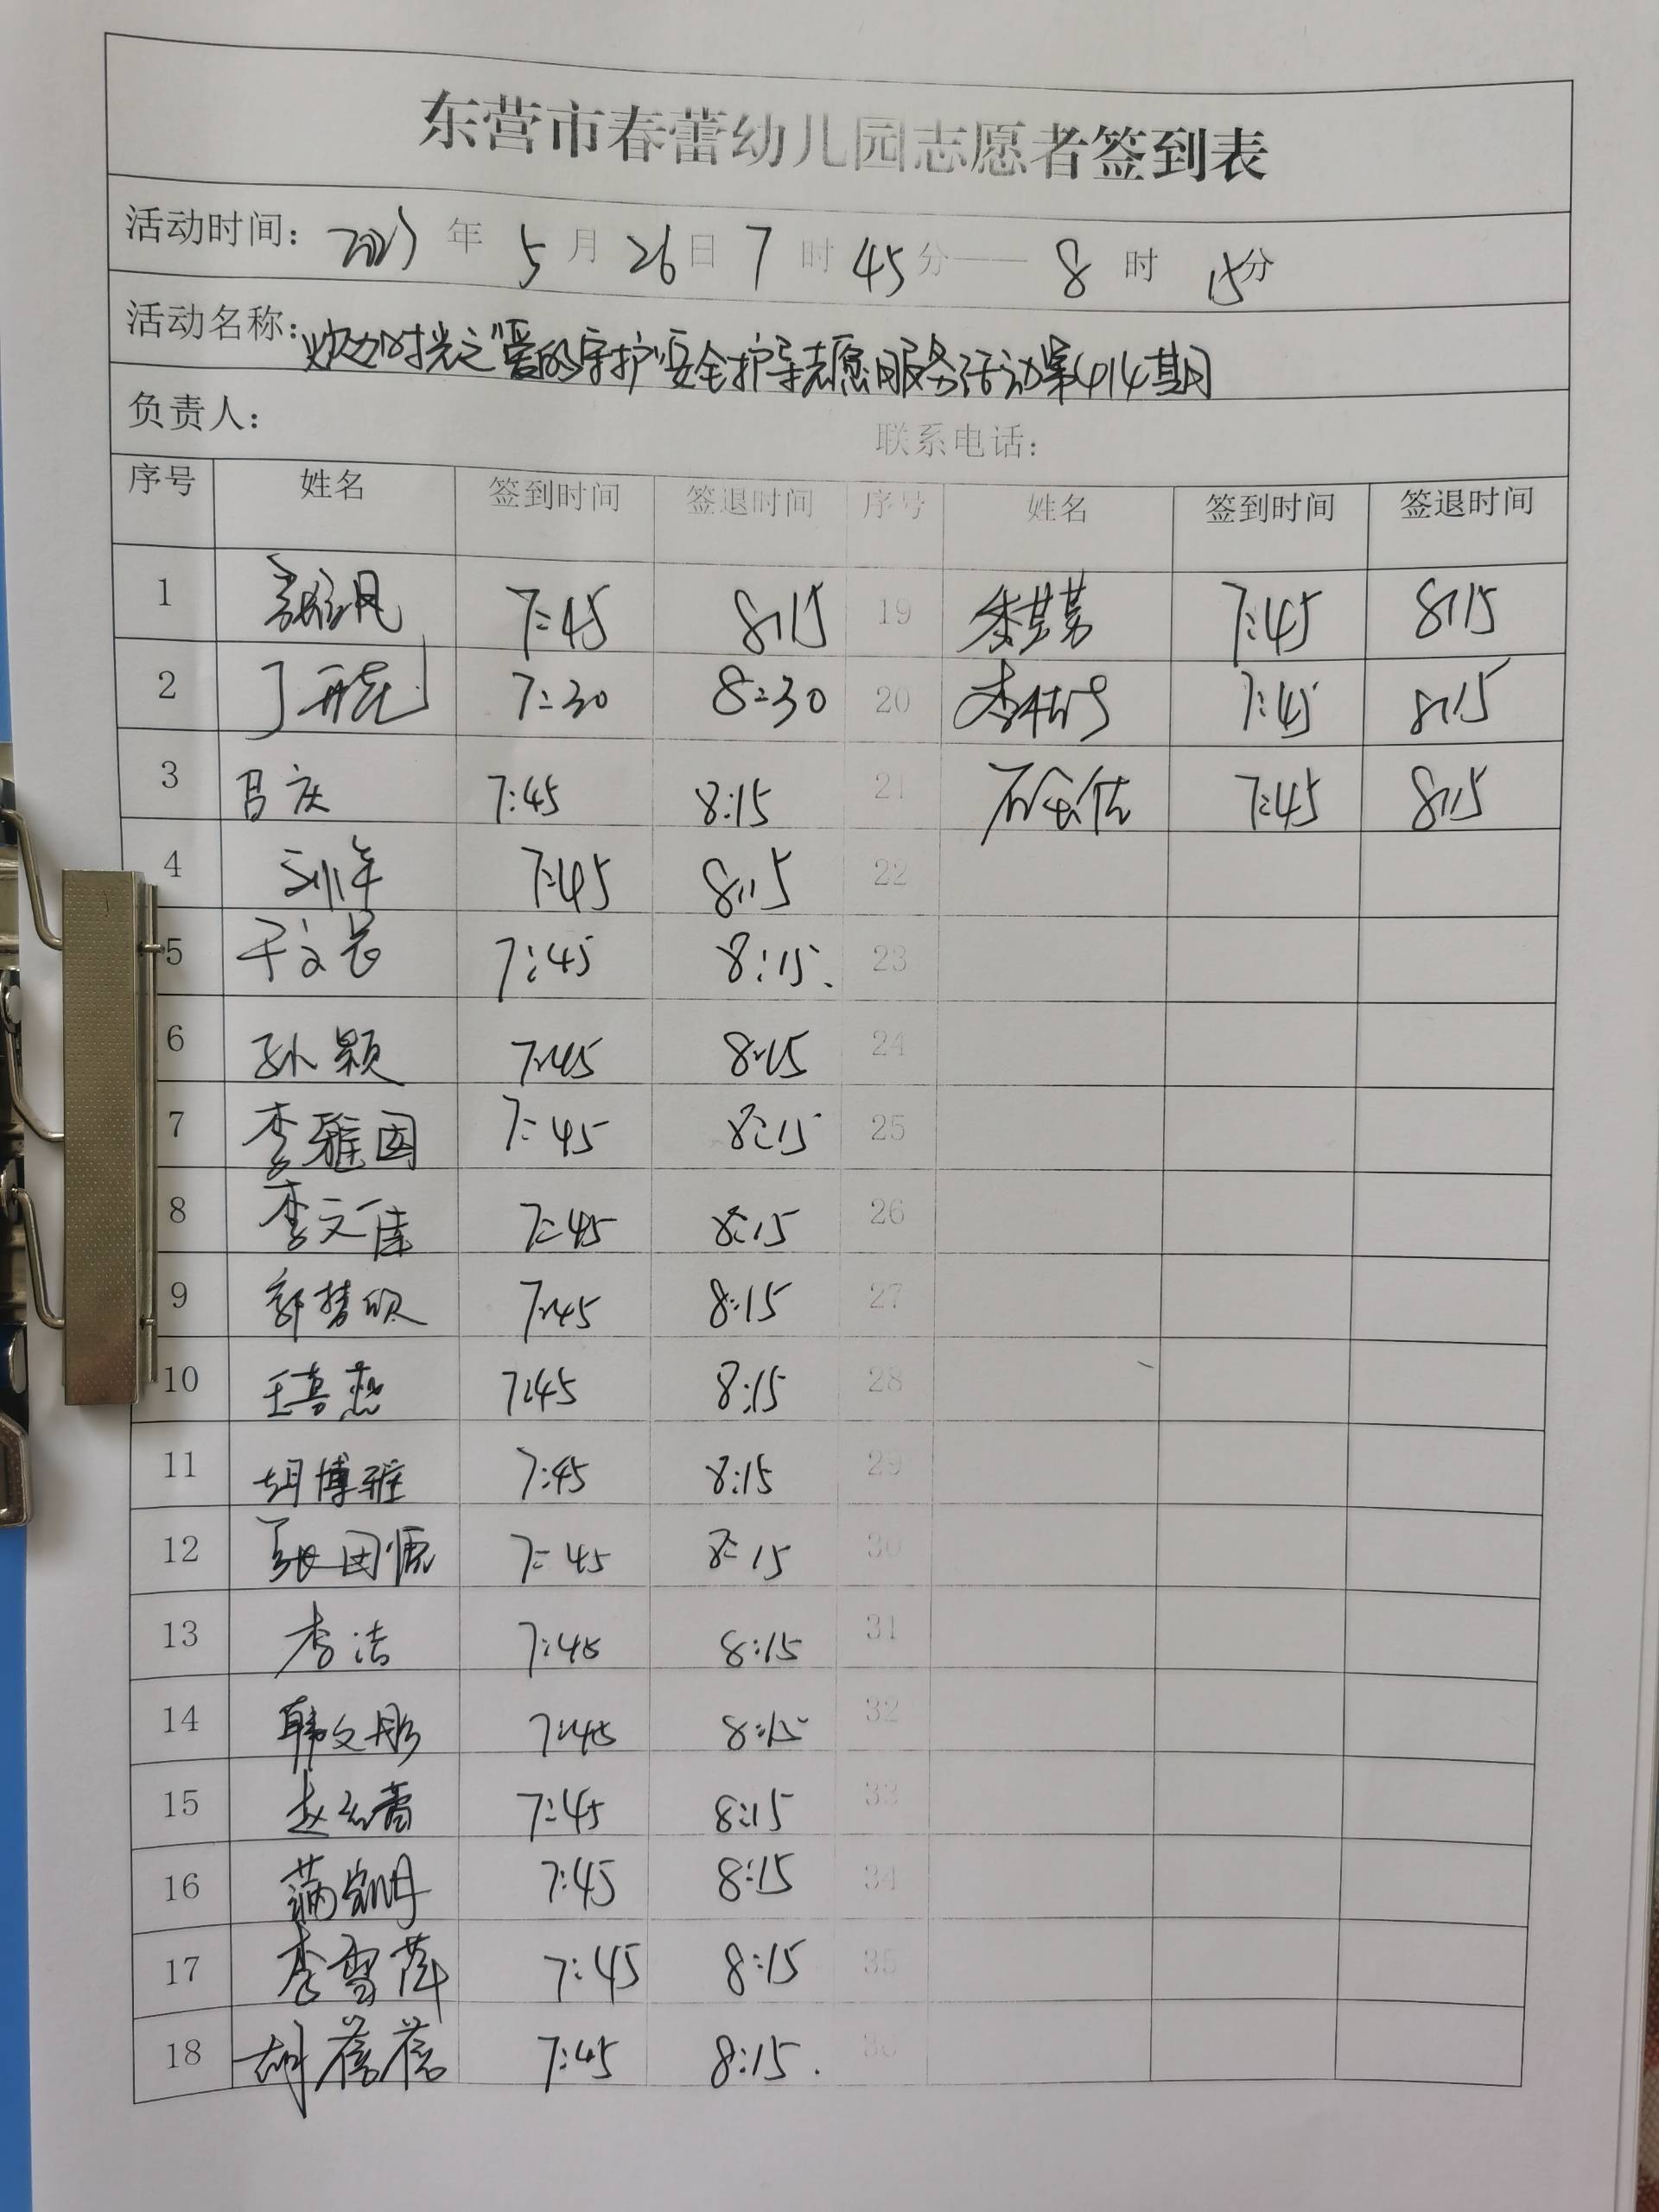 东营市春蕾幼儿园志愿者签到表
活动时间: 2023年5月26日7时45分——8时15分
活动名称: 时光之"爱的守护"安全护导志愿服务活动第414期
负责人: 联系电话:
序号 姓名 签到时间 签退时间 序号 姓名 签到时间 签退时间
1 7:45 8:15 19 7:45 8:15
2 丁 7:30 8:30 20 李 7:45 8:15
3 吕庆 7:45 8:15 21 石 7:45 8:15
4 刘 7:45 8:15 22
5 于文 7:45 8:15. 23
6 孙颖 7:45 8:15 24
7 李雅 7:45 8:15 25
8 李文 7:45 8:15 26
9 郭梦欣 7:45 8:15 27
10 王 7:45 8:15 28
11 胡博雅 7:45 8:15 29
12 张 7:45 8:15 30
13 李洁 7:45 8:15 31
14 韩文彤 7:45 8:15 32
15 赵 7:45 8:15 33
16 7:45 8:15 34
17 李雪萍 7:45 8:15 35
18 胡蓓蓓 7:45 8:15. 36